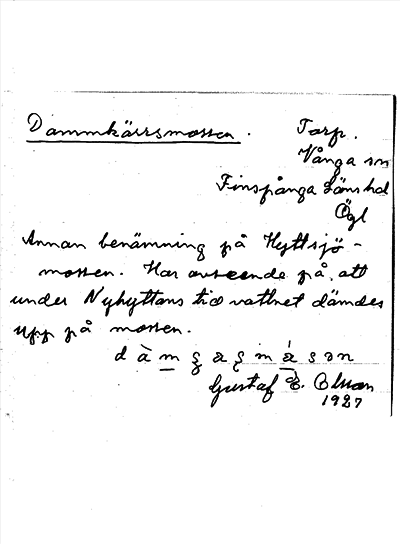 Dammkärrsmossen. Torp.
Vånga sn
Finspånga Läns hd
Ögl
Annan benämning på Hyttsjö-
mossen. Har avseende på, att
under Nyhyttans tid vattnet dämdes
upp på mossen.
Gustaf E. Olsson
1927